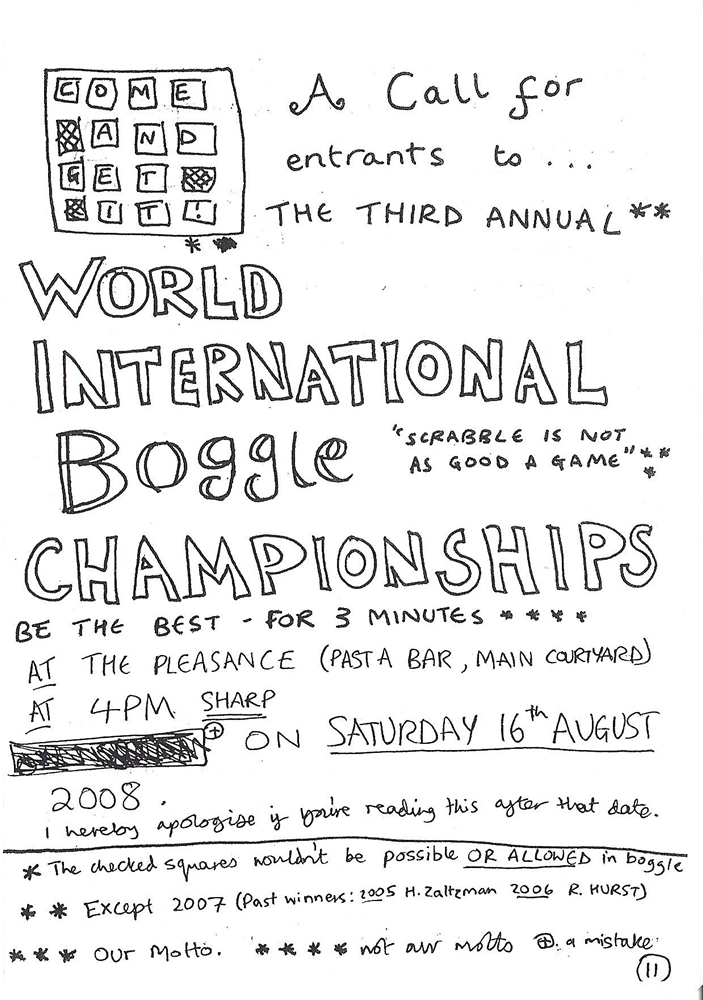 COME
AND
GET
IT!
*
A Call for
entrants to...
THE THIRD ANNUAL**
WORLD
INTERNATIONAL
Boggle
"SCRABBLE IS NOT
AS GOOD A GAME"***
CHAMPIONSHIPS
BE THE BEST - FOR 3 MINUTES ****
AT THE PLEASANCE (PASTA BAR, MAIN COURTYARD)
AT 4PM SHARP
⊕ ON SATURDAY 16th AUGUST
2008.
I hereby apologise if you're reading this after that date.
* The checked squares wouldn't be possible OR ALLOWED in boggle
** Except 2007 (Past winners: 2005 H. Zaltzman 2006 R. HURST)
*** OUR MOTTO. **** not our motto ⊕. a mistake.
11